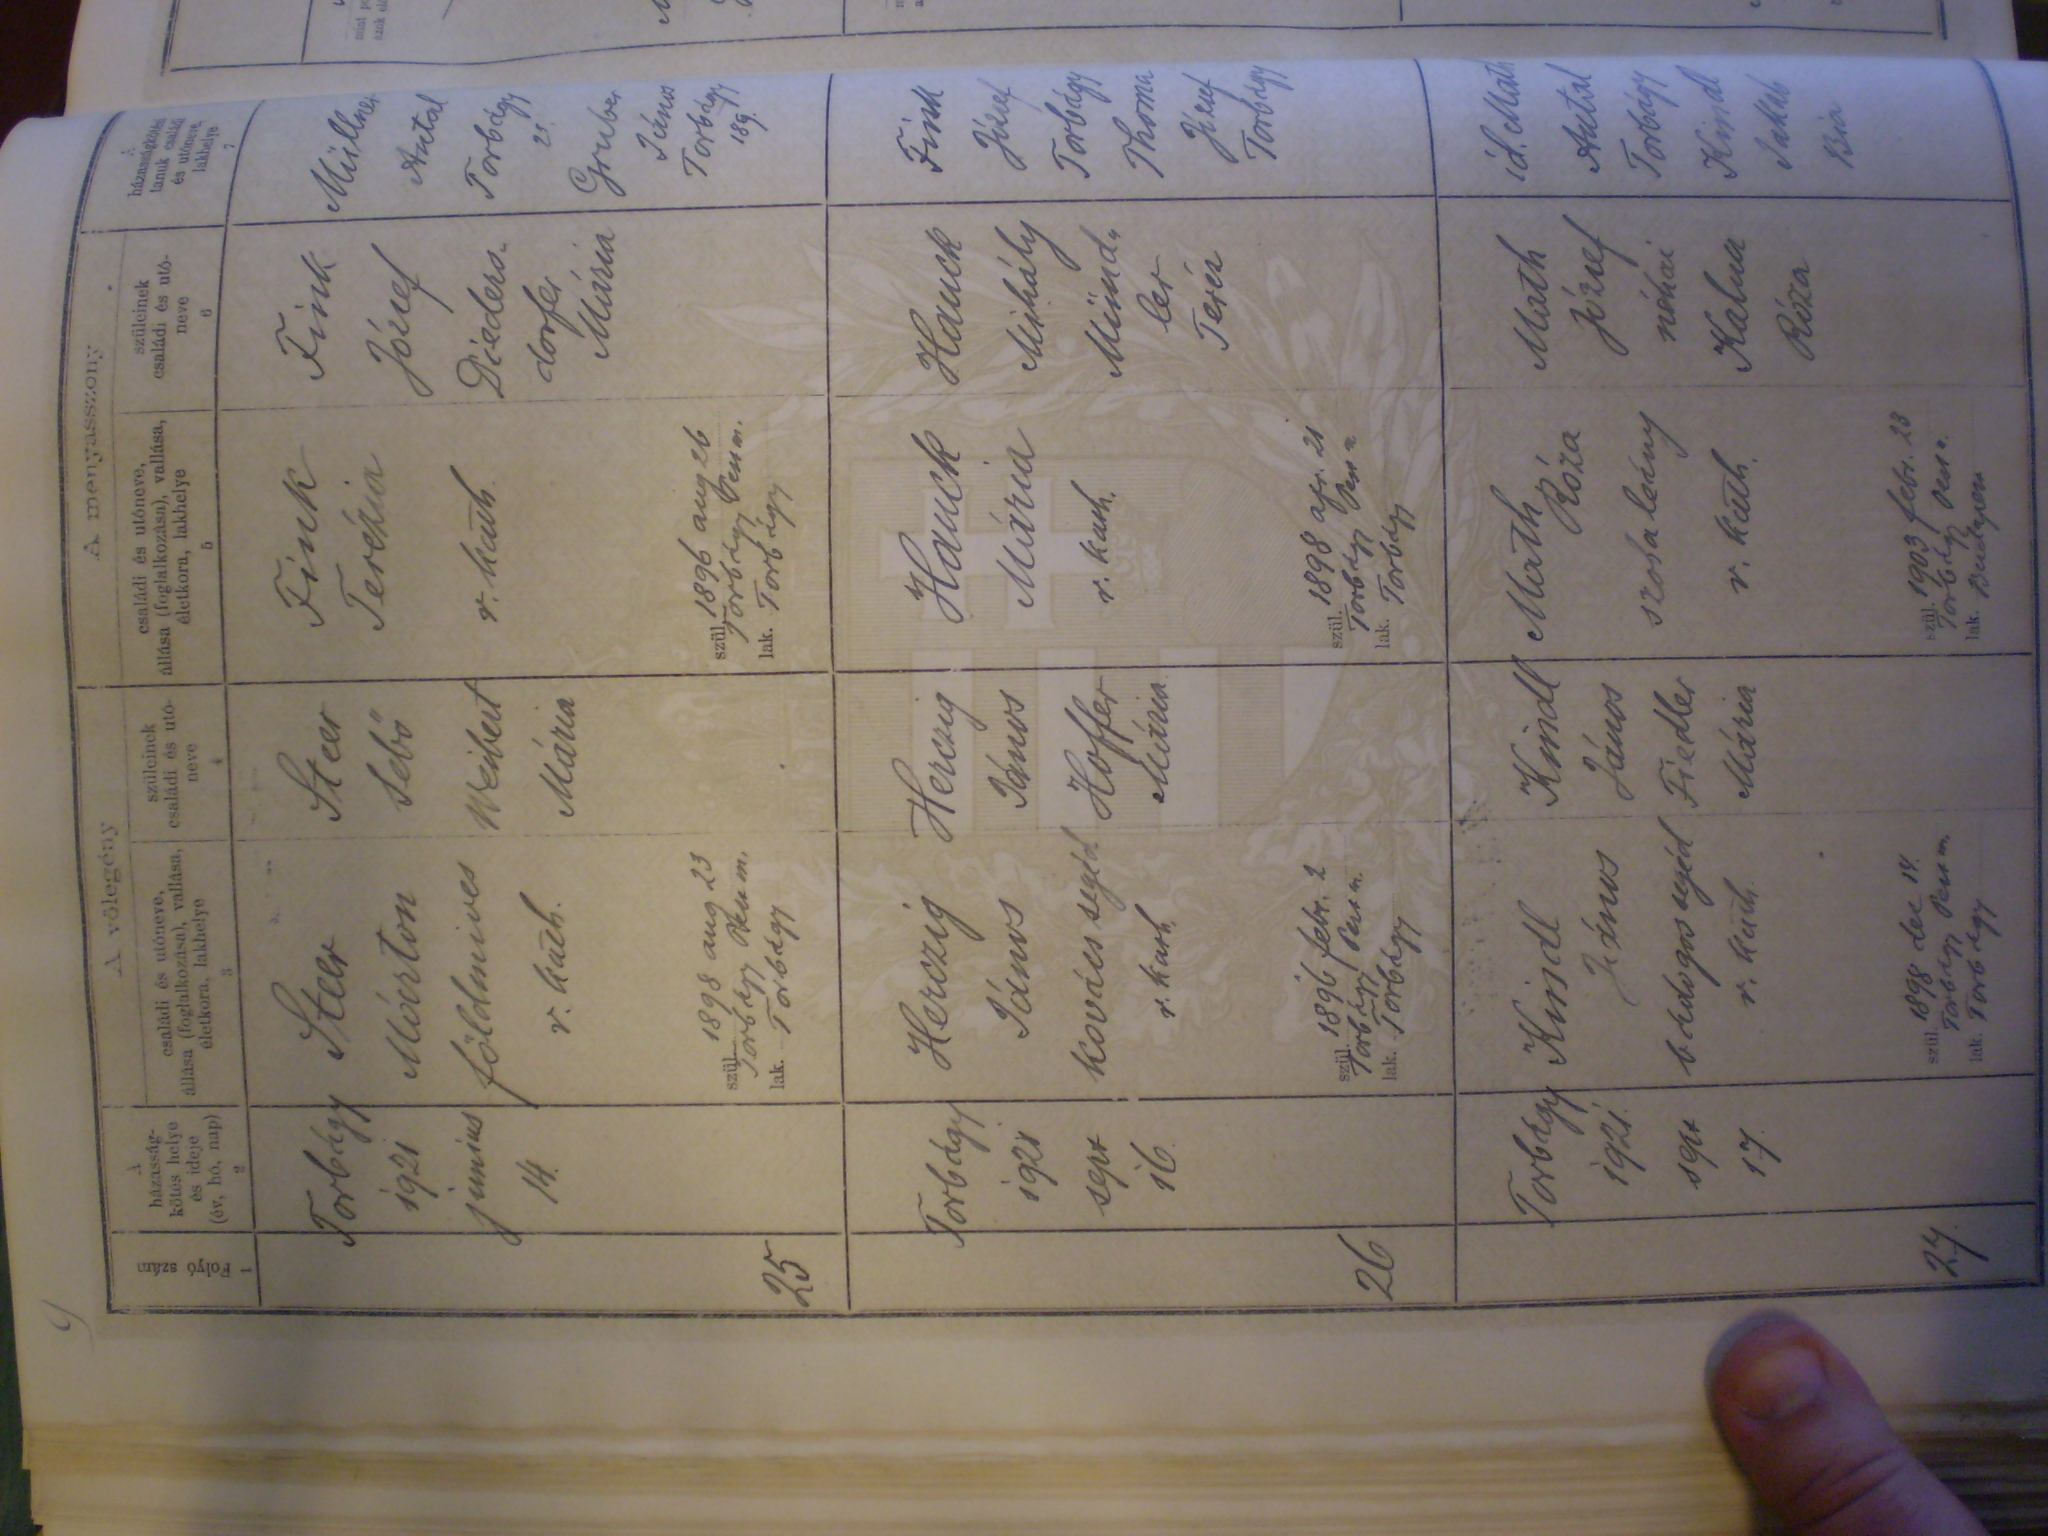 A völegény
A menyasszony
Folyó szám
1
A
házasság-
kötés helye
és ideje
(év, hó, nap)
2
családi és utóneve,
állása (foglalkozása), vallása,
életkora, lakhelye
3
szüleinek
családi és utó-
neve
4
családi és utóneve,
állása (foglalkozása), vallása,
életkora, lakhelye
5
szüleinek
családi és utó-
neve
6
A
házasságkötési
tanuk családi
és utóneve,
lakhelye
7
25
Torbágy
1921
junius
14.
Steer
Márton
földmives
r. kath.
szül. 1898 aug 23
Torbágy Pest m.
lak. Torbágy
Steer
Sebő
Weibert
Mária
Fink
Terézia
r. kath.
szül. 1896 aug 26
Torbágy Pest m.
lak. Torbágy
Fink
József
Dieders-
dorfer
Mária
Müller
Antal
Torbágy
25.
Gruber
János
Torbágy
189.
26
Torbágy
1921
sept
16.
Herczig
János
kovács segéd
r. kath.
szül. 1896 febr. 2
Torbágy Pest m.
lak. Torbágy
Herczig
János
Hoffer
Mária
Hauck
Mária
r. kath.
szül. 1898 apr. 21
Torbágy Pest m
lak. Torbágy
Hauck
Mihály
Münd-
ler
Teréz
Fink
József
Torbágy
Thoma
József
Torbágy
27
Torbágy
1921.
sept
17.
Kindl
János
bádogos segéd
r. kath.
szül. 1898 dec 14.
Torbágy Pest m.
lak. Torbágy
Kindl
János
Fiedler
Mária
Math
Róza
szobaleány
r. kath.
szül. 1903 febr. 23
Torbágy Pest m.
lak. Budapest
Math
József
néhai
Kalma
Róza
id. Math
Antal
Torbágy
Kindl
Jakab
Bia